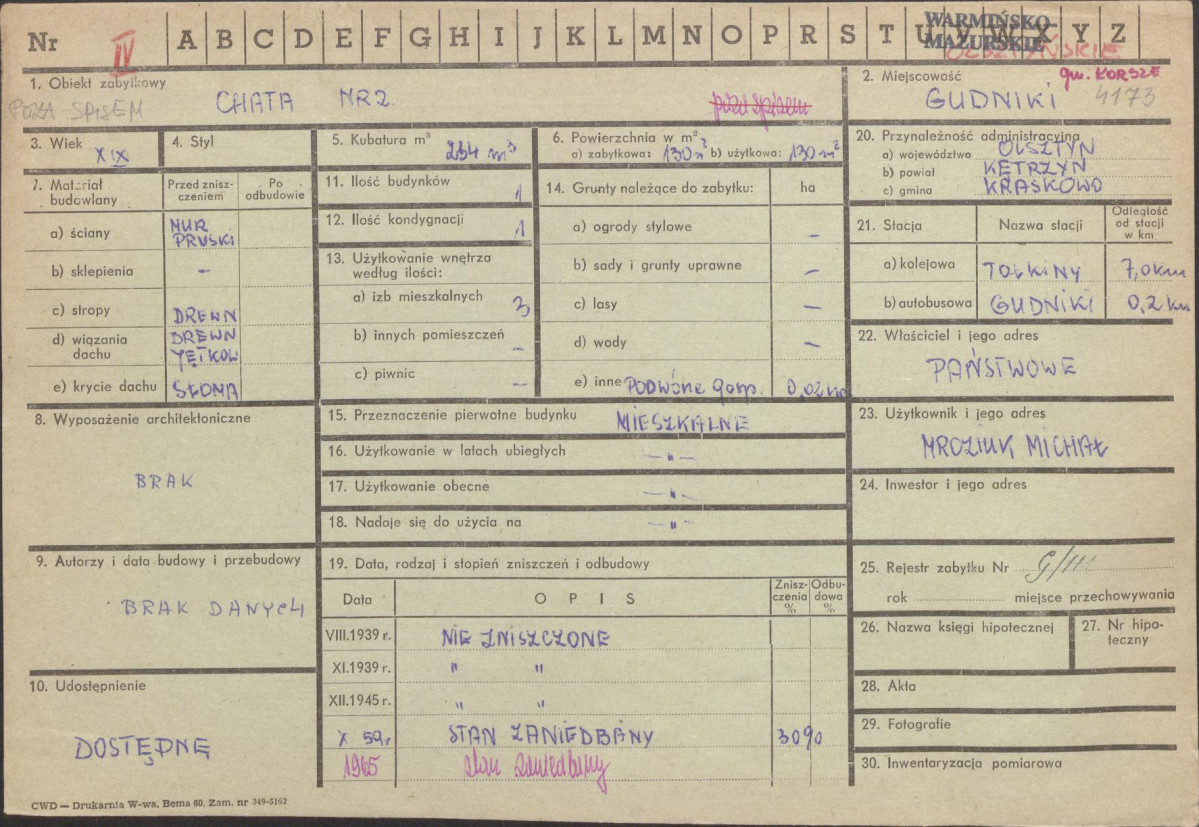 Nr IV A B C D E F G H I J K L M N O P R S T U V W X Y Z
WARMIŃSKO-
MAZURSKIE
OLSZTYŃSKIE
1. Obiekt zabytkowy
POZA SPISEM
CHATA NR 2.
poza spisem
2. Miejscowość
gm. KORSZE
GUDNIKI 4173
3. Wiek XIX
4. Styl
5. Kubatura m³ 234 m³
6. Powierzchnia w m²
a) zabytkowa: 130 m² b) użytkowa: 130 m²
20. Przynależność administracyjna
a) województwo OLSZTYN
b) powiat KĘTRZYN
c) gmina KRASKOWO
7. Materiał budowlany
Przed zniszczeniem
Po odbudowie
a) ściany MUR PRUSKI
b) sklepienia –
c) stropy DREWN
d) wiązania dachu DREWN JĘTKOW
e) krycie dachu SŁOMA
11. Ilość budynków 1
12. Ilość kondygnacji 1
13. Użytkowanie wnętrza
według ilości:
a) izb mieszkalnych 3
b) innych pomieszczeń –
c) piwnic –
14. Grunty należące do zabytku: ha
a) ogrody stylowe –
b) sady i grunty uprawne –
c) lasy –
d) wody –
e) inne PODWÓRZE gosp. 0,02 ha
21. Stacja Nazwa stacji Odległość od stacji w km
a) kolejowa TOŁKINY 7,0 km
b) autobusowa GUDNIKI 0,2 km
22. Właściciel i jego adres
PAŃSTWOWE
8. Wyposażenie architektoniczne
BRAK
15. Przeznaczenie pierwotne budynku MIESZKALNE
16. Użytkowanie w latach ubiegłych – " –
17. Użytkowanie obecne – " –
18. Nadaje się do użycia na – " –
23. Użytkownik i jego adres
MROZIUK MICHAŁ
24. Inwestor i jego adres
9. Autorzy i data budowy i przebudowy
BRAK DANYCH
19. Data, rodzaj i stopień zniszczeń i odbudowy
Data OPIS Zniszczenia % Odbudowa %
VIII.1939 r. NIE ZNISZCZONE
XI.1939 r. " "
XII.1945 r. " "
X 59 r STAN ZANIEDBANY 30%
1965 stan zaniedbany
25. Rejestr zabytku Nr
rok miejsce przechowywania
26. Nazwa księgi hipotecznej
27. Nr hipoteczny
10. Udostępnienie
DOSTĘPNE
28. Akta
29. Fotografie
30. Inwentaryzacja pomiarowa
CWD — Drukarnia W-wa, Bema 60. Zam. nr 349-5162